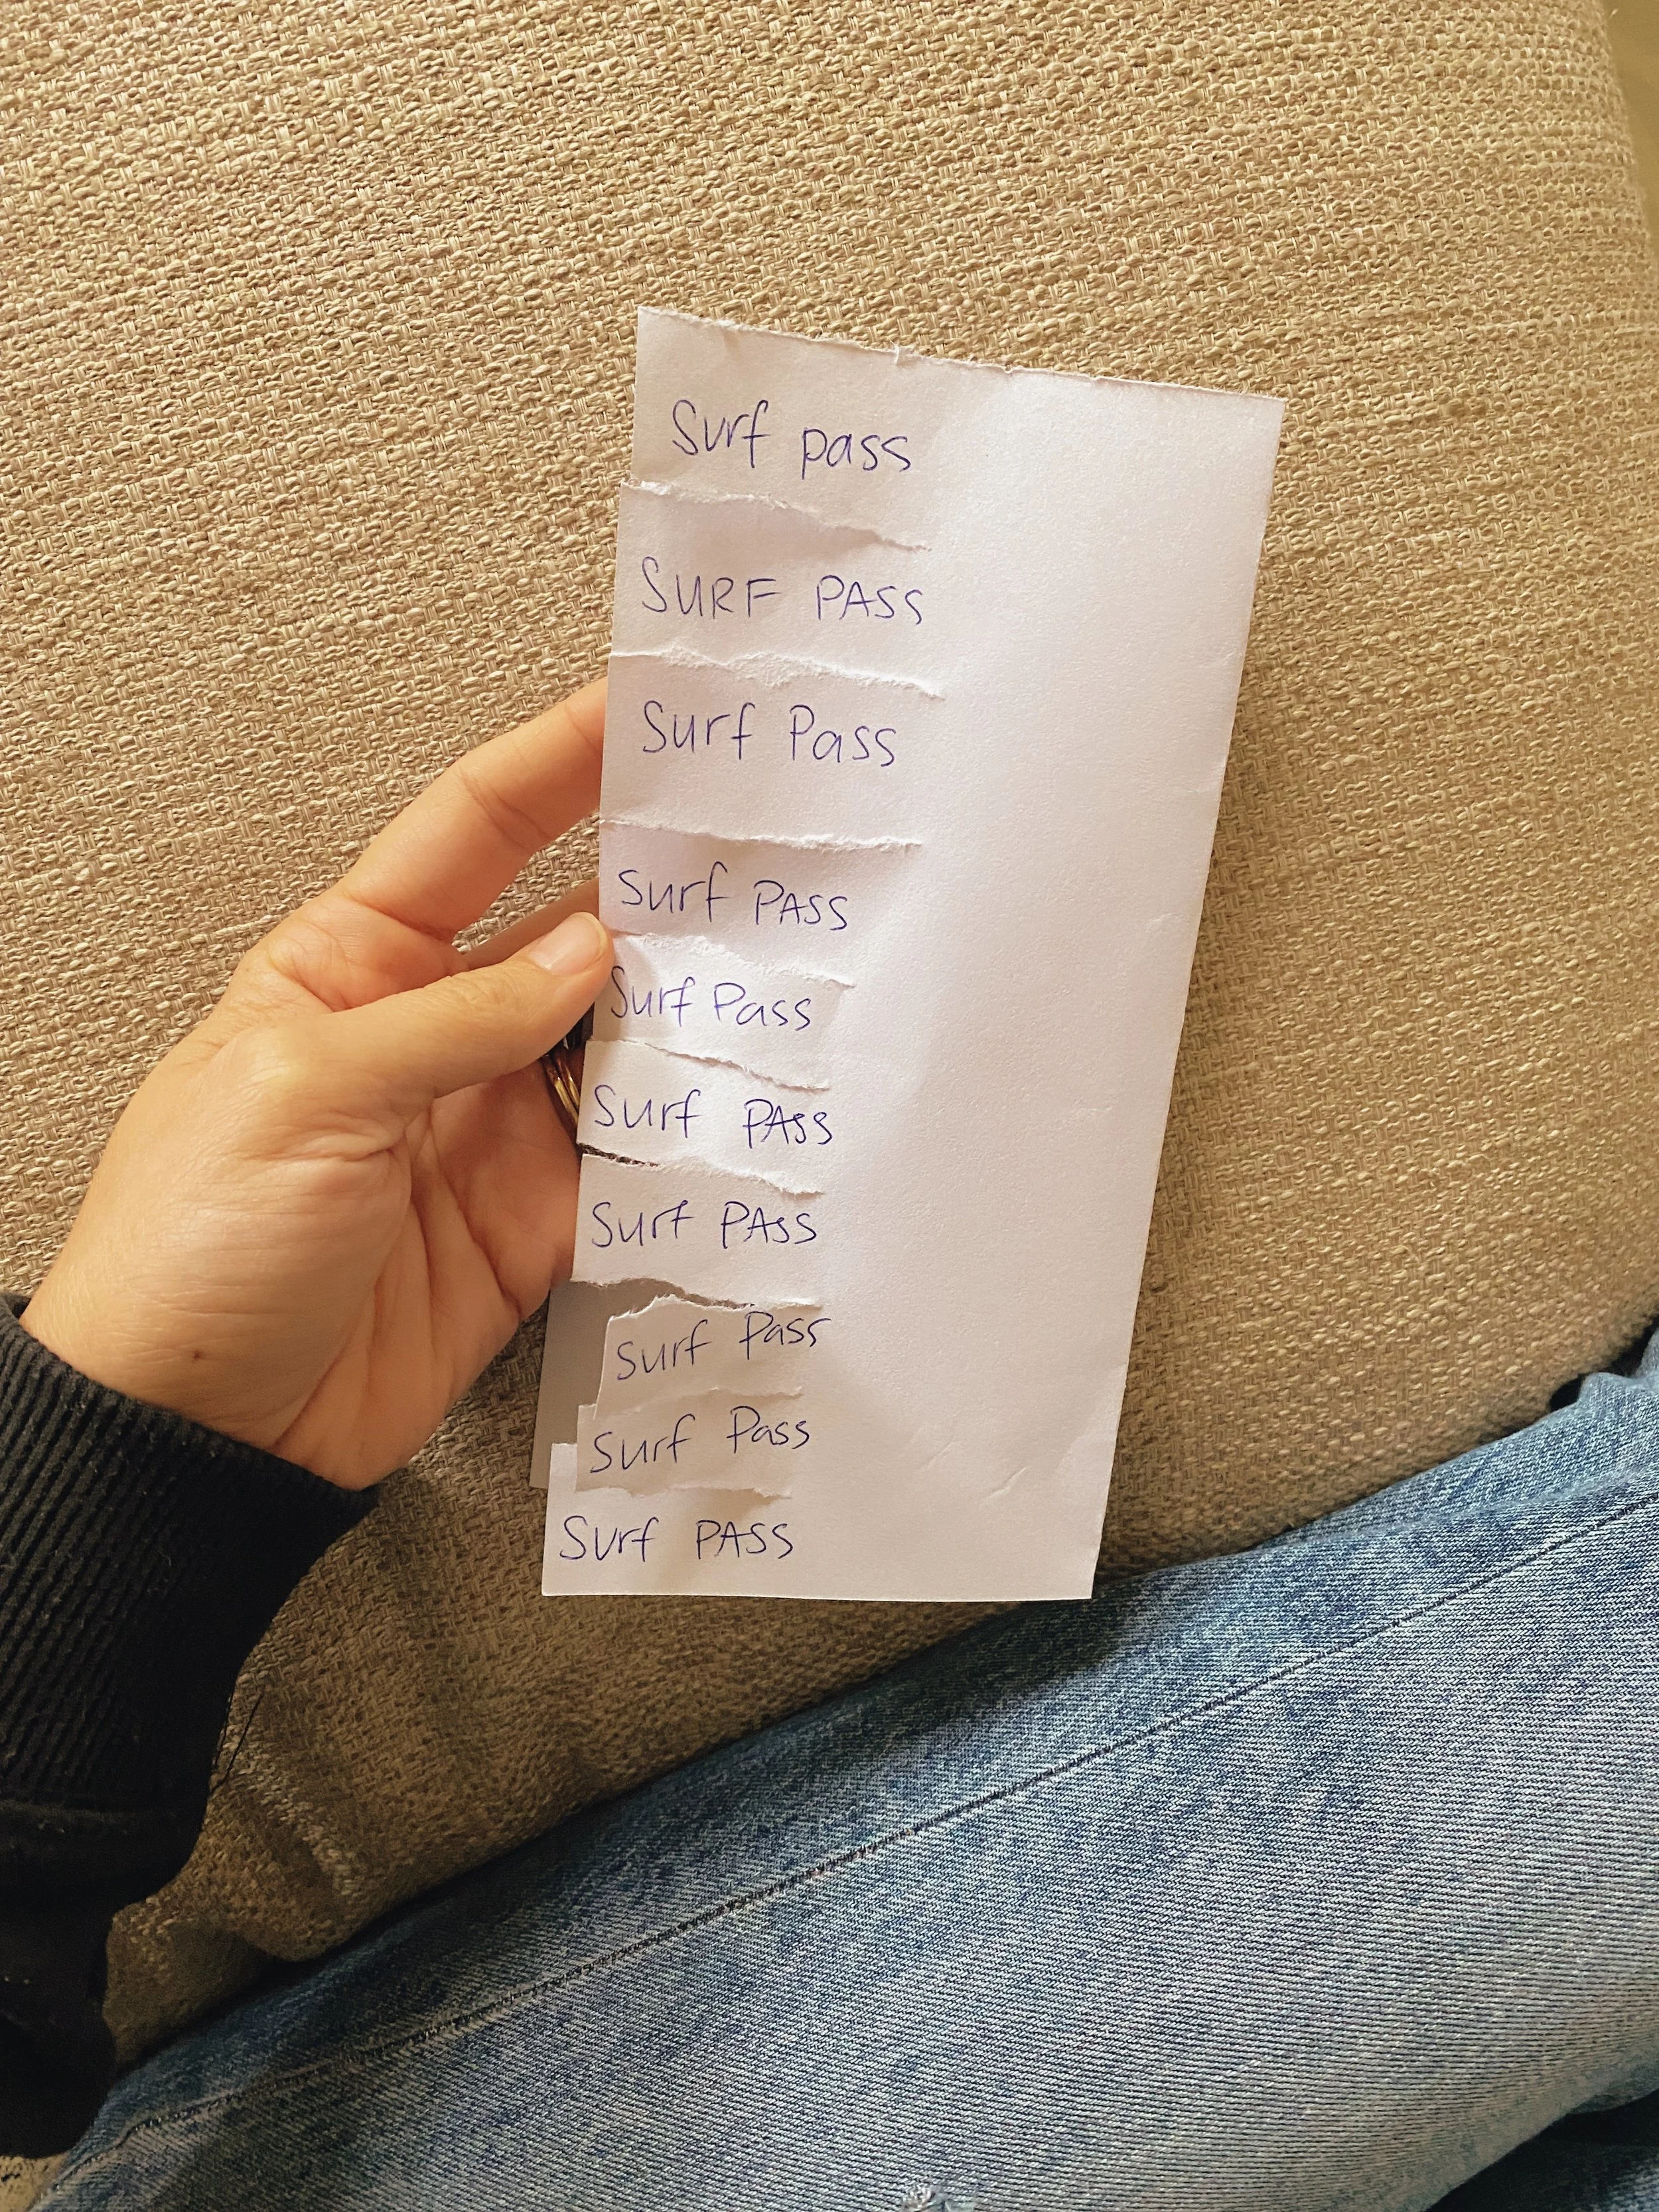 Surf pass
SURF PASS
Surf Pass
Surf PASS
Surf Pass
Surf PASS
Surf PASS
Surf Pass
Surf Pass
Surf PASS